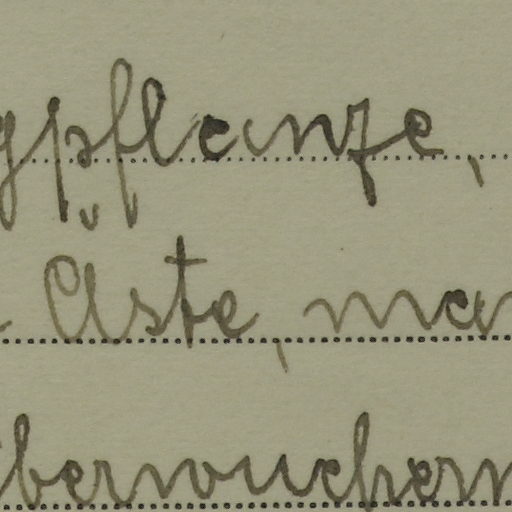 gpflanze,
Äste, man
überwuchern